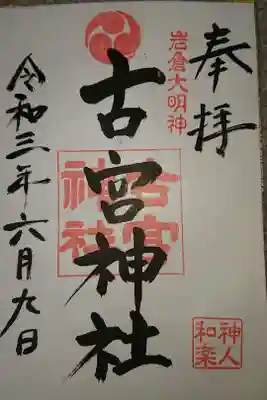 奉拝
岩倉大明神
古宮神社
古宮
神社
令和三年六月九日
神人
和楽